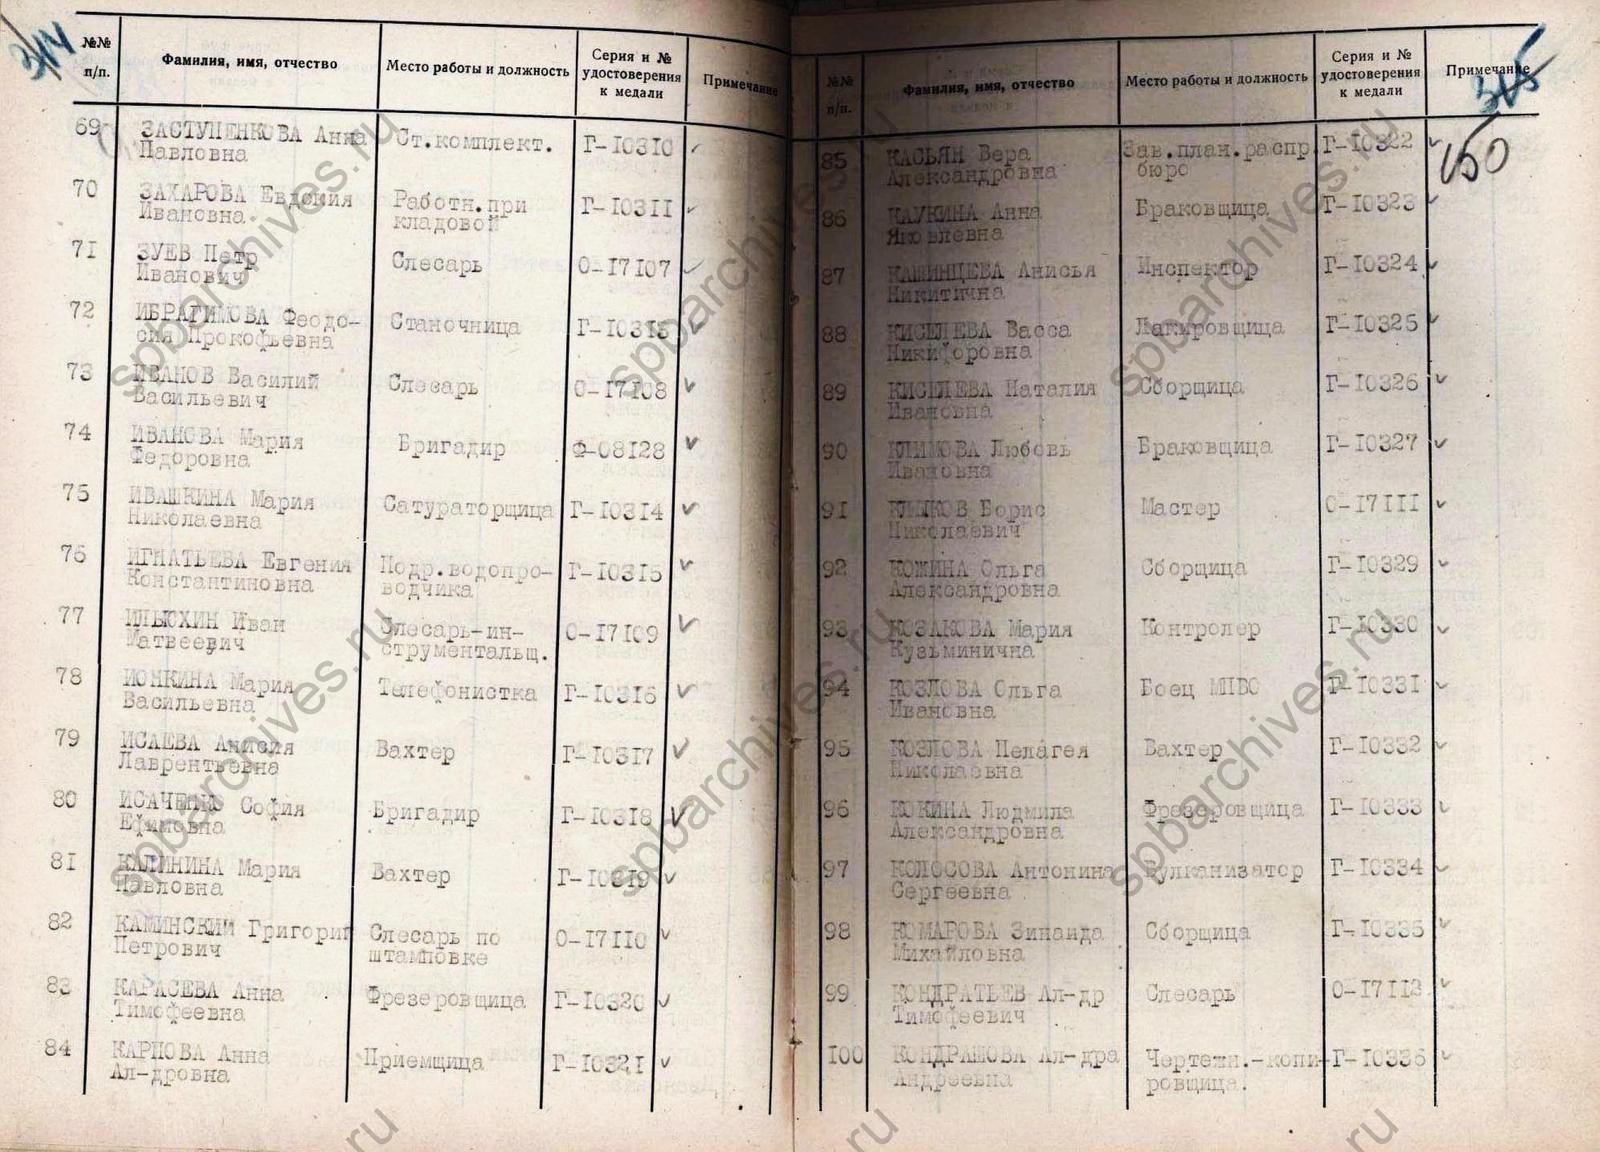 314
№№ п/п.
Фамилия, имя, отчество
Место работы и должность
Серия и № удостоверения к медали
Примечание
69 ЗАСТУПЕНКОВА Анна Ст.комплект. Г-10310
Павловна
70 ЗАХАРОВА Евдокия Работн.при Г-10311
Ивановна кладовой
71 ЗУЕВ Петр Слесарь О-17107
Иванович
72 ИБРАГИМОВА Феодо- Станочница Г-10313
сия Прокофьевна
73 ИВАНОВ Василий Слесарь О-17108
Васильевич
74 ИВАНОВА Мария Бригадир Ф-08128
Федоровна
75 ИВАШКИНА Мария Сатураторщица Г-10314
Николаевна
76 ИГНАТЬЕВА Евгения Подр.водопро- Г-10315
Константиновна водчика
77 ИЛЬЮХИН Иван Слесарь-ин- О-17109
Матвеевич струментальщ.
78 ИОНКИНА Мария Телефонистка Г-10316
Васильевна
79 ИСАЕВА Анисия Вахтер Г-10317
Лаврентьевна
80 София Бригадир Г-10318
Ефимовна
81 КАЛИНИНА Мария Вахтер Г-10319
Павловна
82 КАМИНСКИЙ Григорий Слесарь по О-17110
Петрович штамповке
83 КАРАСЕВА Анна Фрезеровщица Г-10320
Тимофеевна
84 КАРПОВА Анна Приемщица Г-10321
Ал-дровна
315
№№ п/п.
Фамилия, имя, отчество
Место работы и должность
Серия и № удостоверения к медали
Примечание
150
85 КАСЬЯН Вера Зав.план.распр. Г-10322
Александровна бюро
86 КАУКИНА Анна Браковщица Г-10323
Яковлевна
87 КАШИНЦЕВА Анисья Инспектор Г-10324
Никитична
88 КИСЕЛЕВА Васса Лакировщица Г-10325
Никифоровна
89 КИСЕЛЕВА Наталия Сборщица Г-10326
Ивановна
90 КЛИМОВА Любовь Браковщица Г-10327
Ивановна
91 КЛЫКОВ Борис Мастер О-17111
Николаевич
92 КОЖИНА Ольга Сборщица Г-10329
Александровна
93 КОЗАКОВА Мария Контролер Г-10330
Кузьминична
94 КОЗЛОВА Ольга Боец МПВО Г-10331
Ивановна
95 КОЗЛОВА Пелагея Вахтер Г-10332
Николаевна
96 КОКИНА Людмила Фрезеровщица Г-10333
Александровна
97 КОЛОСОВА Антонина Вулканизатор Г-10334
Сергеевна
98 КОМАРОВА Зинаида Сборщица Г-10335
Михайловна
99 КОНДРАТЬЕВ Ал-др Слесарь О-17112
Тимофеевич
100 КОНДРАШОВА Ал-дра Чертежн.-копи- Г-10336
Андреевна ровщица.
spbarchives.ru
spbarchives.ru
spbarchives.ru
spbarchives.ru
spbarchives.ru
spbarchives.ru
ru
ru
ru